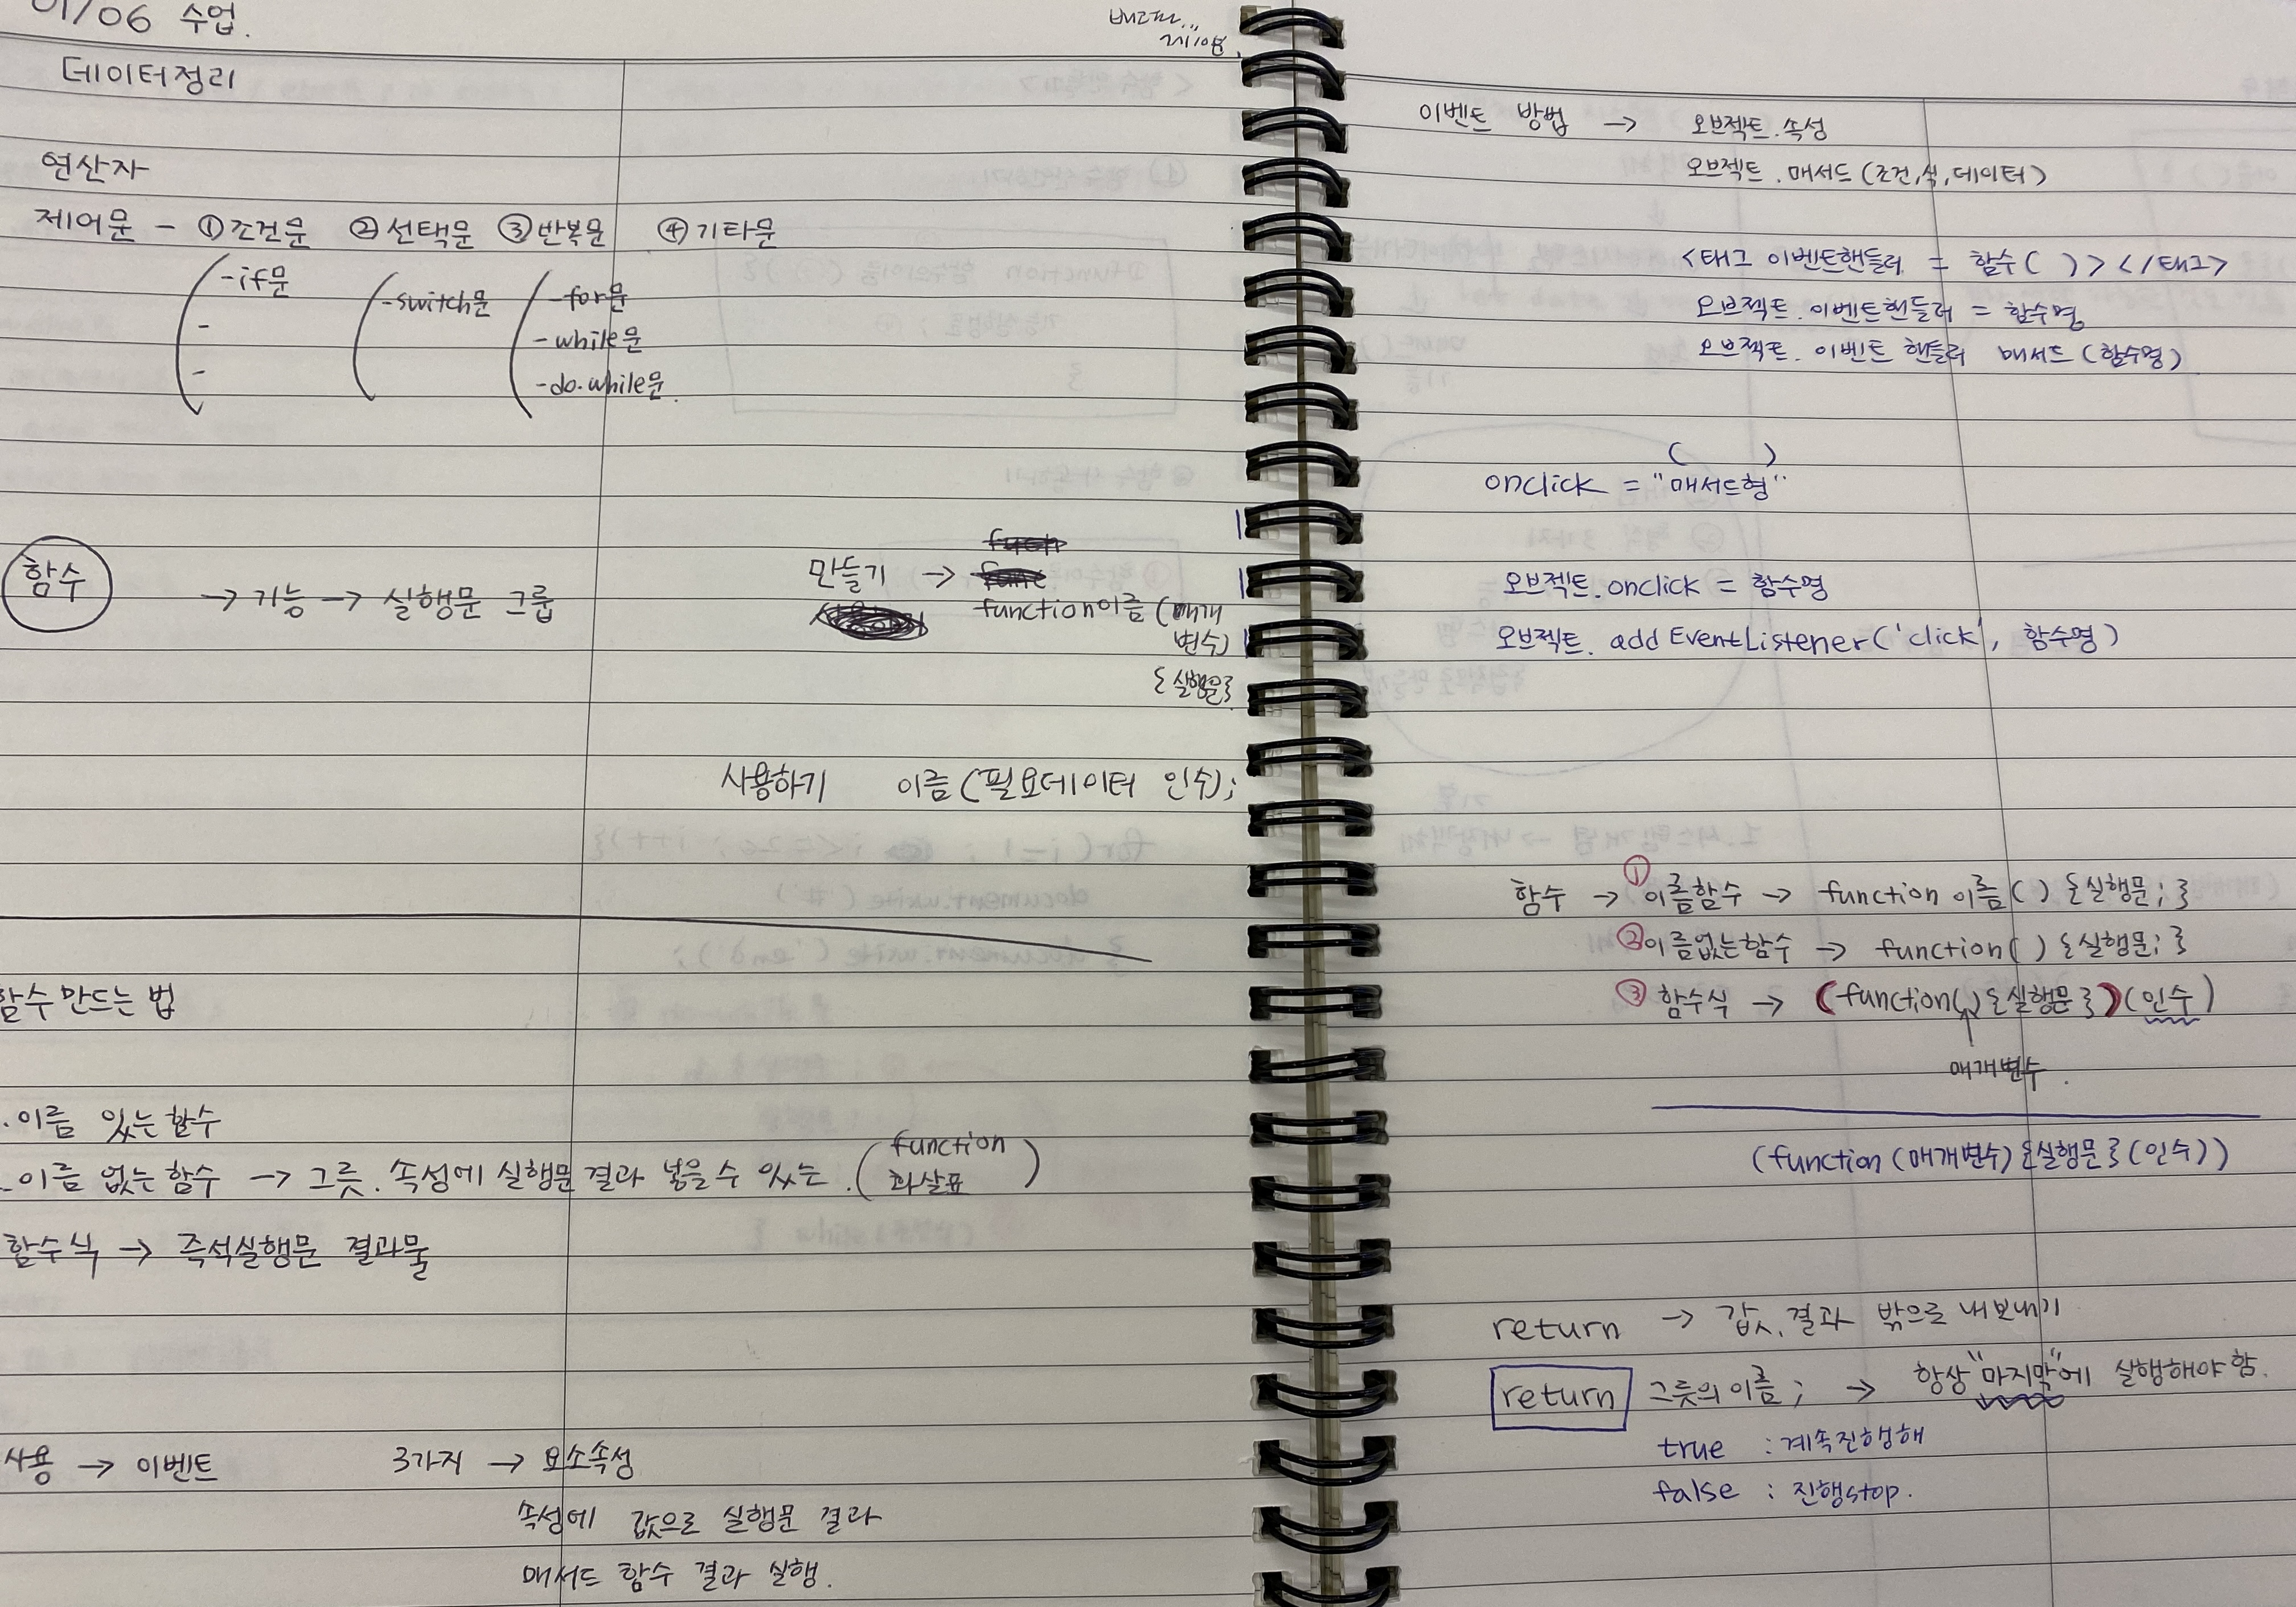 01/06 수업.
데이터정리
연산자
제어문 - ①조건문 ②선택문 ③반복문 ④기타문
-if문
-
-
-switch문
-for문
-while문
-do.while문.
함수 → 기능 → 실행문 그룹
만들기 →
function이름 (매개
변수)
{실행문}
사용하기 이름 (필요데이터 인수);
함수 만드는 법
. 이름 있는 함수
. 이름 없는 함수 → 그릇. 속성에 실행문 결과 넣을 수 있는. (function
화살표)
함수식 → 즉석실행문 결과물
사용 → 이벤트 3가지 → 요소속성
속성에 값으로 실행문 결과
매서드 함수 결과 실행.
이벤트 방법 → 오브젝트.속성
오브젝트.매서드 (조건,식,데이터)
<태그 이벤트핸들러 = 함수( )></태그>
오브젝트.이벤트핸들러 = 함수명
오브젝트. 이벤트 핸들러 매서드 (함수명)
( )
onclick = "매서드형"
오브젝트.onclick = 함수명
오브젝트. addEventListener('click', 함수명)
함수 → ①이름함수 → function 이름( ) {실행문; }
②이름없는함수 → function( ) {실행문; }
③ 함수식 → (function( ){실행문})(인수)
매개변수.
(function (매개변수) {실행문}(인수))
return → 값, 결과 밖으로 내보내기
return 그릇의 이름; → 항상"마지막"에 실행해야 함.
true : 계속진행해
false : 진행stop.